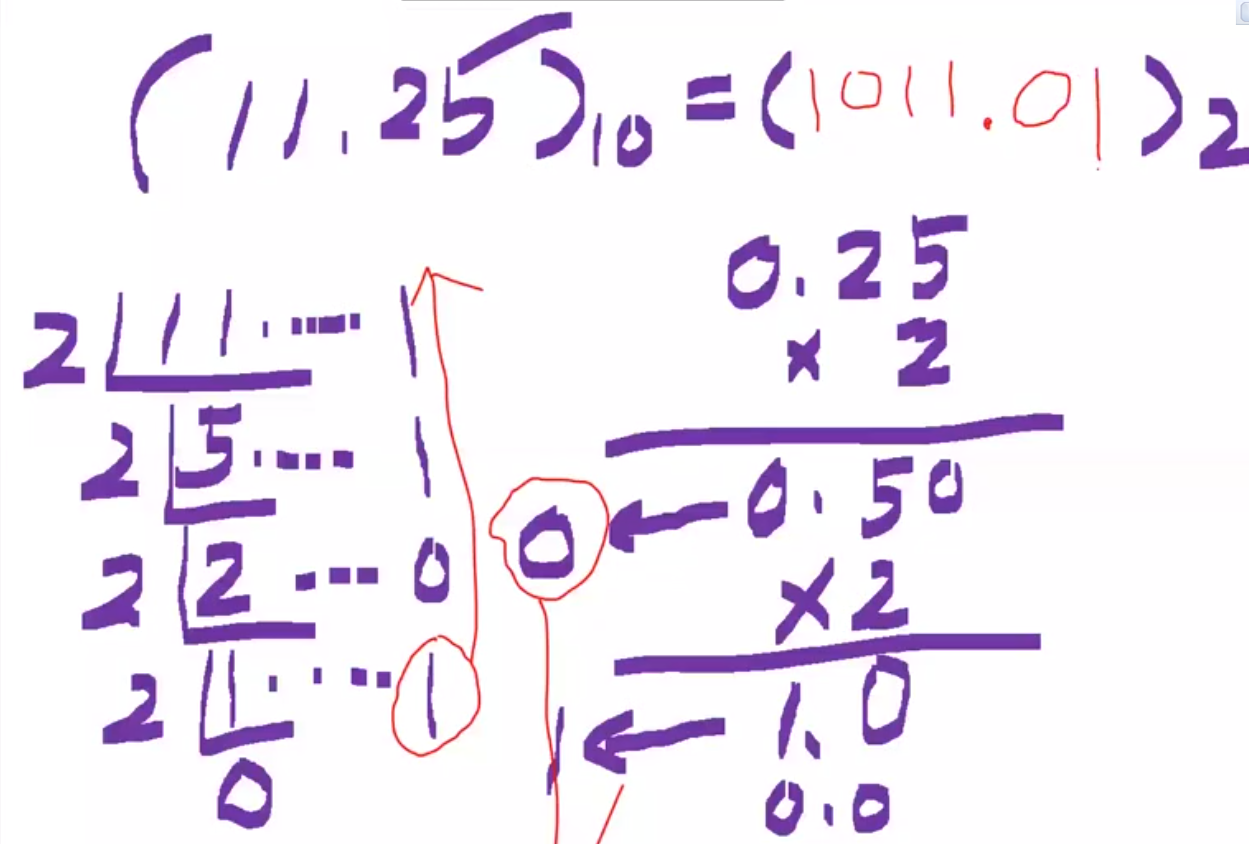 (11.25)10 = (1011.01)2
2 11 ...... 1
2 5 ..... 1
2 2 .... 0
2 1 ..... 1
0
0.25
× 2
0 ← 0.50
×2
1 ← 1.0
0.0